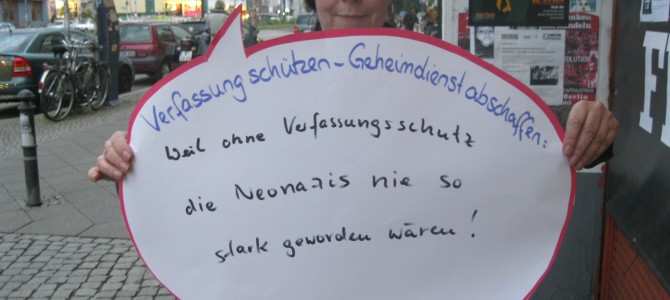 Verfassung schützen - Geheimdienst abschaffen:
Weil ohne Verfassungsschutz
die Neonazis nie so
stark geworden wären!